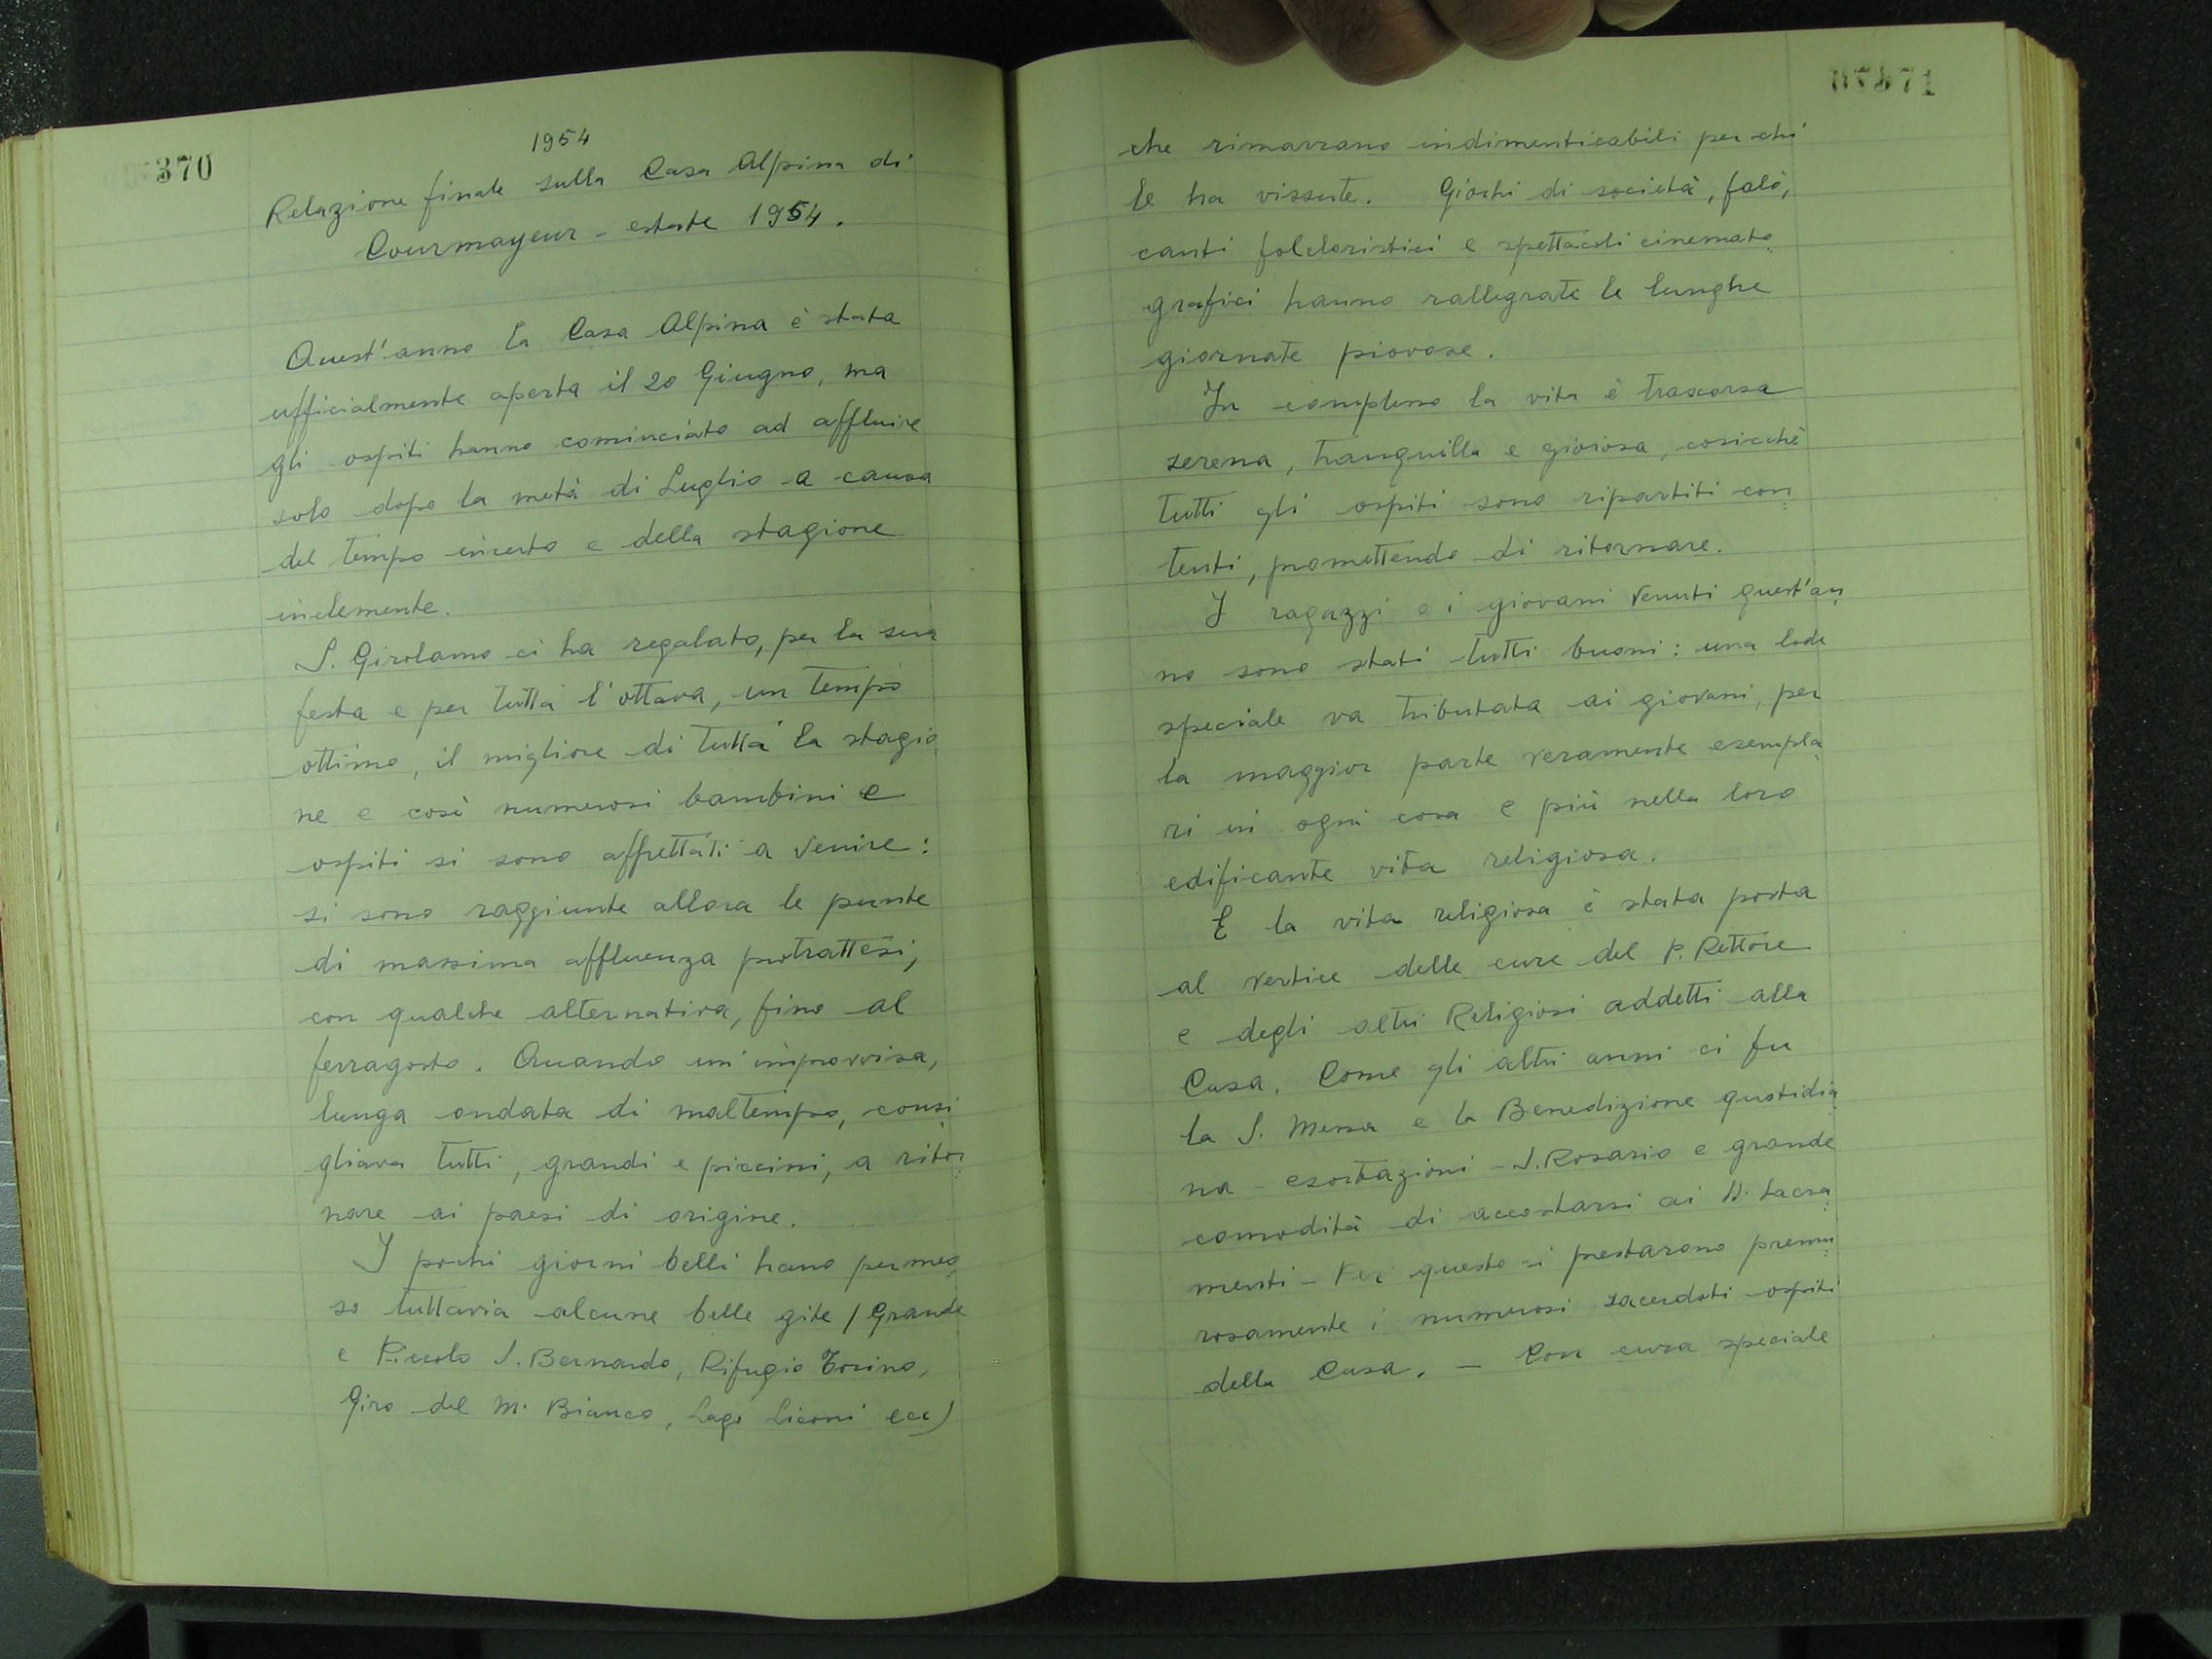 370
1954
Relazione finale sulla Casa Alpina di
Courmayeur - estate 1954.
Quest'anno la Casa Alpina è stata
ufficialmente aperta il 20 Giugno, ma
gli ospiti hanno cominciato ad affluire
solo dopo la metà di Luglio a causa
del tempo incerto e della stagione
inclemente.
S. Girolamo ci ha regalato, per la sua
festa e per tutta l'ottava, un tempo
ottimo, il migliore di tutta la stagio
ne e così numerosi bambini e
ospiti si sono affrettati a venire:
si sono raggiunte allora le punte
di massima affluenza protrattesi,
con qualche alternativa, fino al
ferragosto. Quando un'improvvisa,
lunga ondata di maltempo, consi
gliava tutti, grandi e piccini, a ritor
nare ai paesi di origine.
I pochi giorni belli hano permes
so tuttavia alcune belle gite (Grande
e Piccolo S. Bernardo, Rifugio Torino,
Giro del M. Bianco, Lago Liconi ecc)
07371
che rimarrano indimenticabili per chi
le ha vissute. Giochi di società, falò,
canti folcloristici e spettacoli cinemato
grafici hanno rallegrate le lunghe
giornate piovose.
In complesso la vita è trascorsa
serena, tranquilla e gioiosa, cosicchè
tutti gli ospiti sono ripartiti con
tenti, promettendo di ritornare.
I ragazzi e i giovani venuti quest'an
no sono stati tutti buoni: una lode
speciale va tributata ai giovani, per
la maggior parte veramente esempla
ri in ogni cosa e più nella loro
edificante vita religiosa.
E la vita religiosa è stata posta
al vertice delle cure del P. Rettore
e degli altri Religiosi addetti alla
Casa. Come gli altri anni ci fu
la S. Messa e la Benedizione quotidia
na - esortazioni - S. Rosario e grande
comodità di accostarsi ai SS. Sacra
menti - Per questo si prestarono premu
rosamente i numerosi sacerdoti ospiti
della Casa. - Con cura speciale